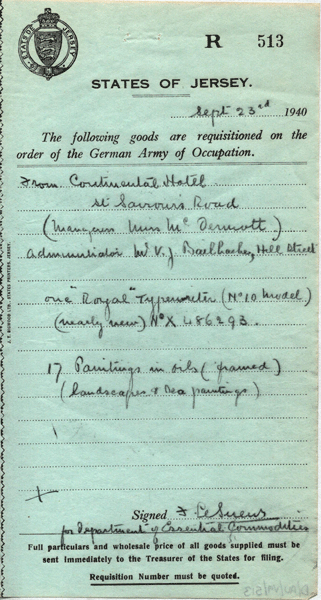 STATES OF JERSEY
R 513
STATES OF JERSEY.
Sept 23rd 1940
The following goods are requisitioned on the
order of the German Army of Occupation.
From Continental Hotel
St Saviours Road
(Manager Miss Mc Dermott)
Administrator Mr V. J. Bailhache, Hill Street
one "Royal" Typewriter (No 10 Model)
(nearly new) No X 486293.
17 Paintings in oils (framed)
(landscapes & Sea paintings)
Signed F Le Sueur
for Department of Essential Commodities
Full particulars and wholesale price of all goods supplied must be
sent immediately to the Treasurer of the States for filing.
Requisition Number must be quoted.